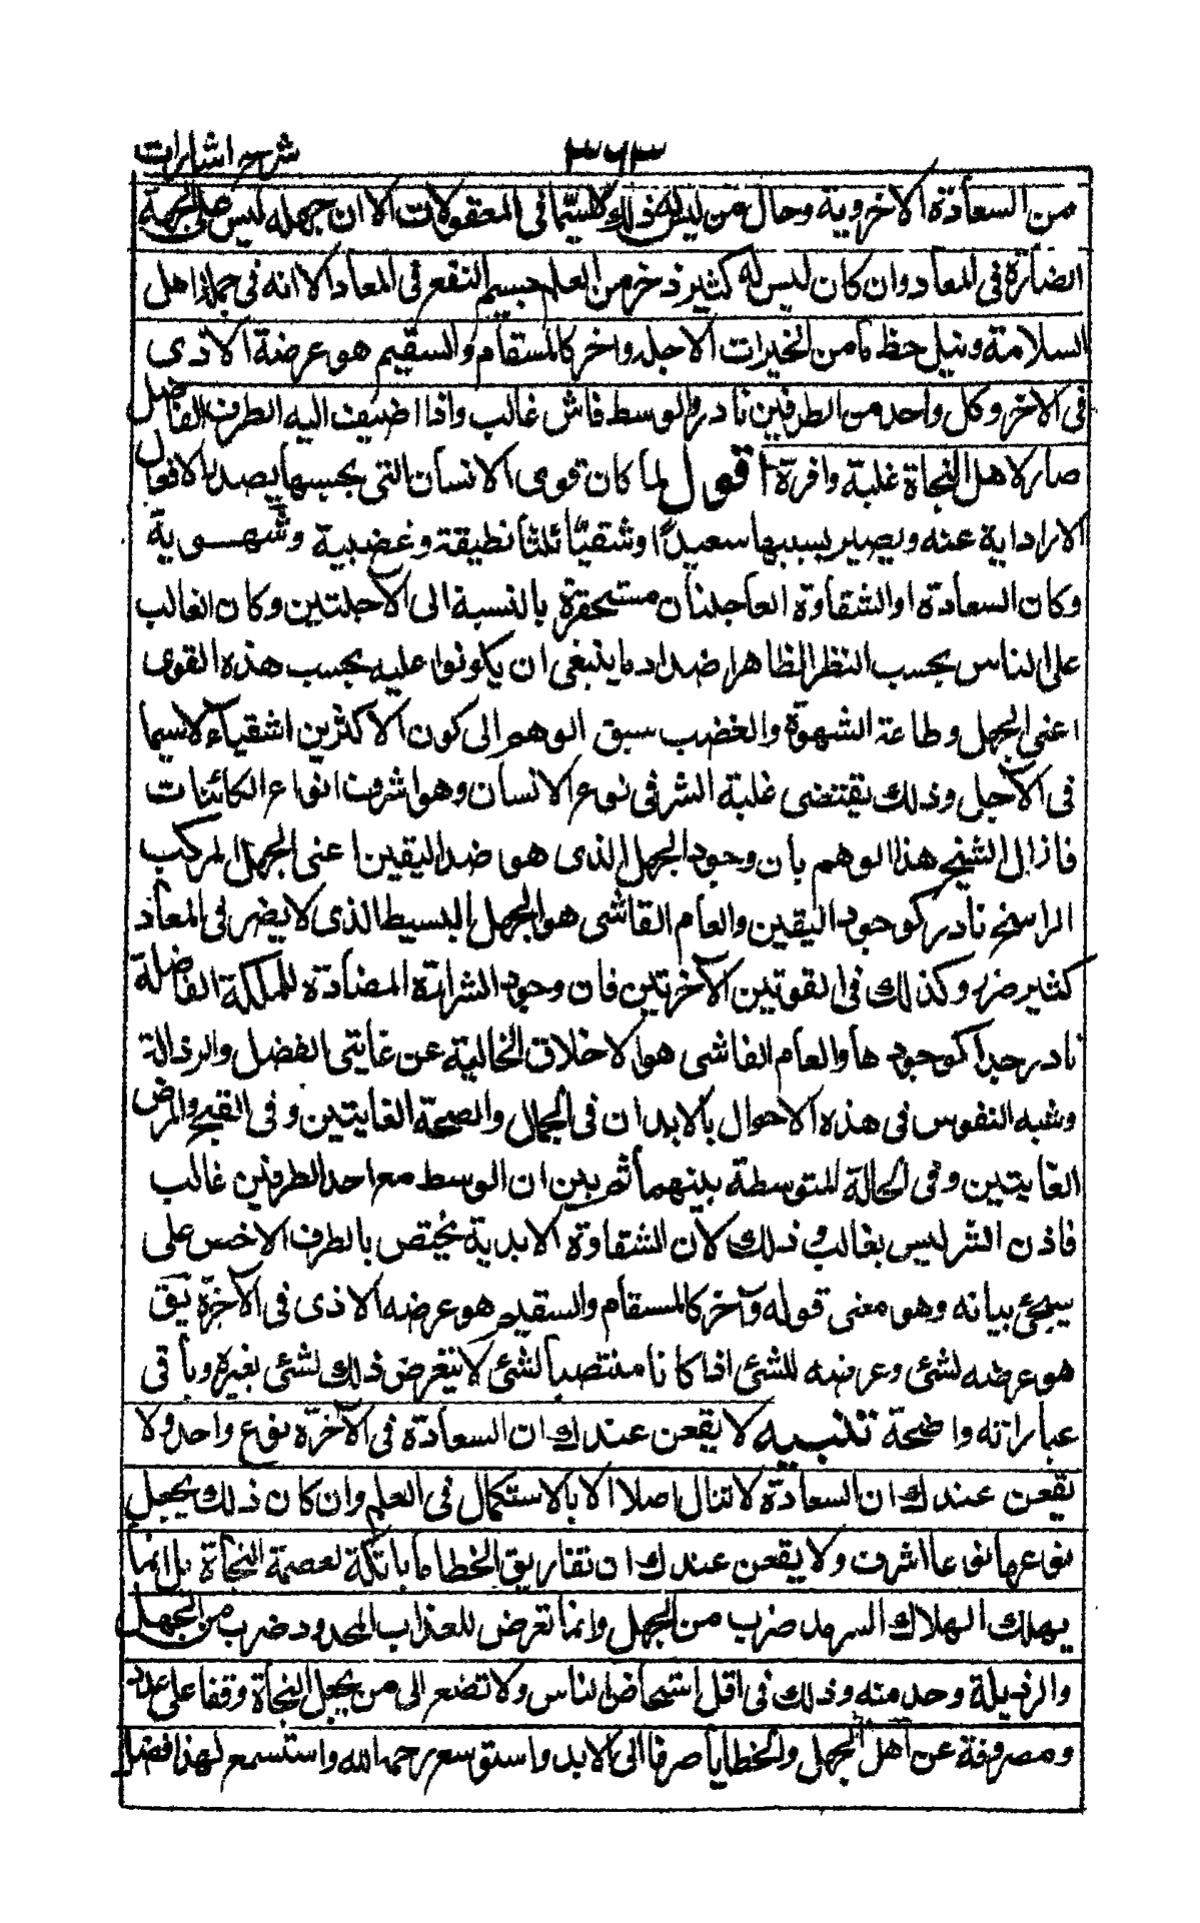 شرح اشارات
۳۶۳
من السعادة الاخروية وحال من ليس له ذلك لاسيما فى المعقولات الا ان جهله ليس على الجهة
الضارة فى المعاد وان كان ليس له كثير ذخر من العلم جسيم النفع فى المعاد الا انه فى جملة اهل
السلامة ونيل حظ ما من الخيرات الآجلة واخر كالمسقام والسقيم هو عرضة الاذى
فى الاخرة وكل واحد من الطرفين نادر والوسط فاش غالب واذا اضيف اليه الطرف الفاضل
صار لاهل النجاة غلبة وافرة اقول لما كان قوى الانسان التى بحسبها يصدر الافعال
الارادية عنه ويصير بسببها سعيدًا او شقيًا ثلثا نطقية وغضبية وشهوية
وكان السعادة او الشقاوة العاجلتان مستحقرة بالنسبة الى الآجلتين وكان الغالب
على الناس بحسب النظر الظاهر اضداد ما ينبغى ان يكونوا عليه بحسب هذه القوى
اعنى الجهل وطاعة الشهوة والغضب سبق الوهم الى كون الاكثرين اشقياء لاسيما
فى الآجل وذلك يقتضى غلبة الشر فى نوع الانسان وهو اشرف انواع الكائنات
فازال الشيخ هذا الوهم بان وجود الجهل الذى هو ضد اليقين اعنى الجهل المركب
الراسخ نادر كوجود اليقين والعام الفاشى هو الجهل البسيط الذى لا يضر فى المعاد
كثير ضرر وكذلك فى القوتين الآخرتين فان وجود الشرارة المضادة للملكة الفاضلة
نادر جدا كوجودها والعام الفاشى هو الاخلاق الخالية عن غايتى الفضل والرذالة
وشبه النفوس فى هذه الاحوال بالابدان فى الجمال والصحة الغايتين وفى القبح والمرض
الغايتين وفى الحالة المتوسطة بينهما ثم بين ان الوسط مع احد الطرفين غالب
فاذن الشر ليس بغالب وذلك لان الشقاوة الابدية يختص بالطرف الاخس على
سيجئ بيانه وهو معنى قوله وآخر كالمسقام والسقيم هو عرضه الاذى فى الآخرة يق
هو عرضه لشئ وعرضه للشئ اذا كانا منتصبا لشئ لا يتعرض ذلك لشئ بغيره وباقى
عباراته واضحة تنبيه لا يقعن عندك ان السعادة فى الآخرة نوع واحد ولا
يقعن عندك ان السعادة لا تنال اصلا الا بالاستكمال فى العلم وان كان ذلك يجعل
نوعها نوعا اشرف ولا يقعن عندك ان تفاريق الخطاما باتكة لعصمة النجاة بل انما
يهلك الهلاك السرمد ضرب من الجهل وانما تعرض للعذاب المحدود ضرب من الجهل
والرذيلة وحد منه وذلك فى اقل اشخاص الناس ولا تضع الى من يجعل النجاة وقفا على عدد
ومصروفة عن اهل الجهل والخطايا صرفا الى الابد واستوسع رحمة الله واستسمع لهذا فضل